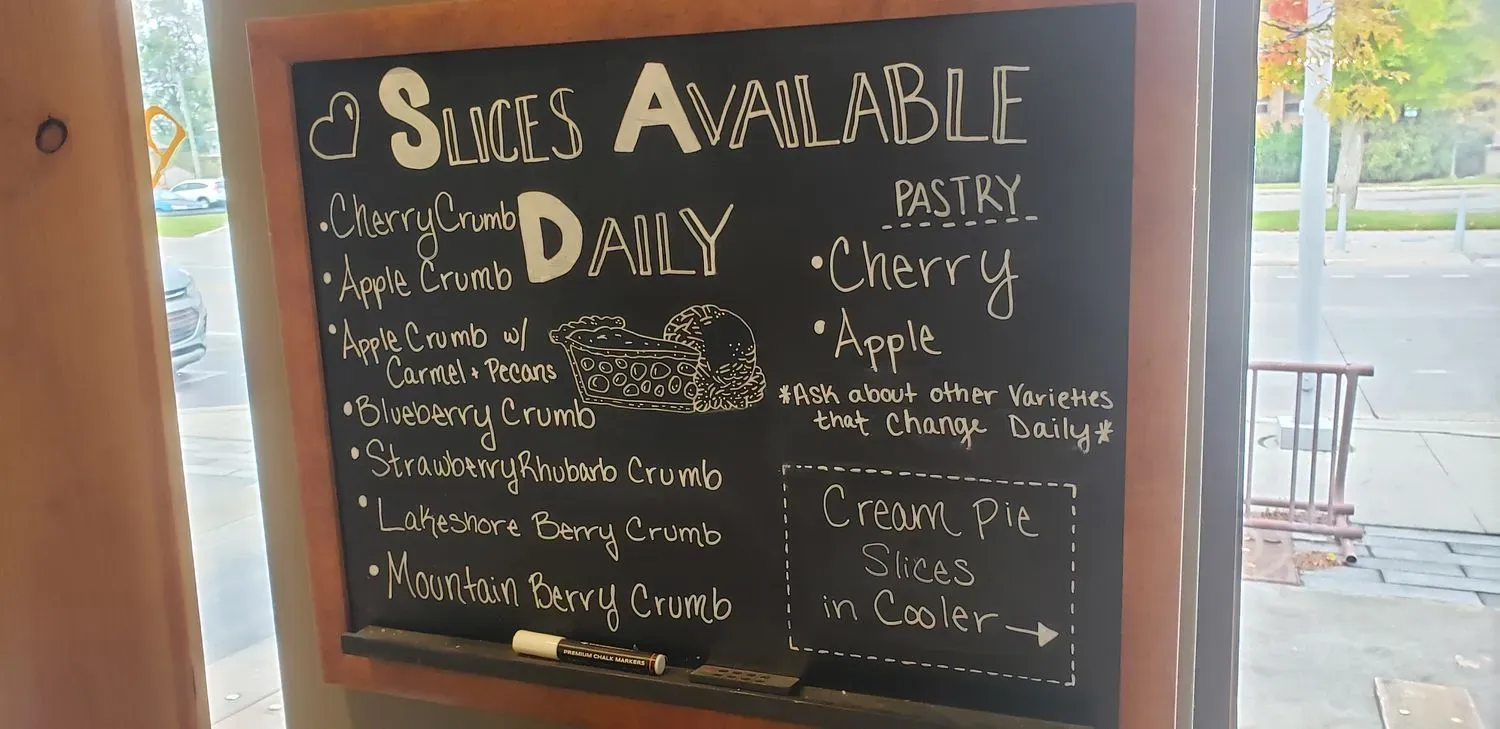 Slices Available
Daily
•Cherry Crumb
•Apple Crumb
•Apple Crumb w/
Carmel + Pecans
•Blueberry Crumb
•Strawberry Rhubarb Crumb
•Lakeshore Berry Crumb
•Mountain Berry Crumb
PASTRY
•Cherry
•Apple
*Ask about other Varieties
that Change Daily*
Cream Pie
Slices
in Cooler→
PREMIUM CHALK MARKERS